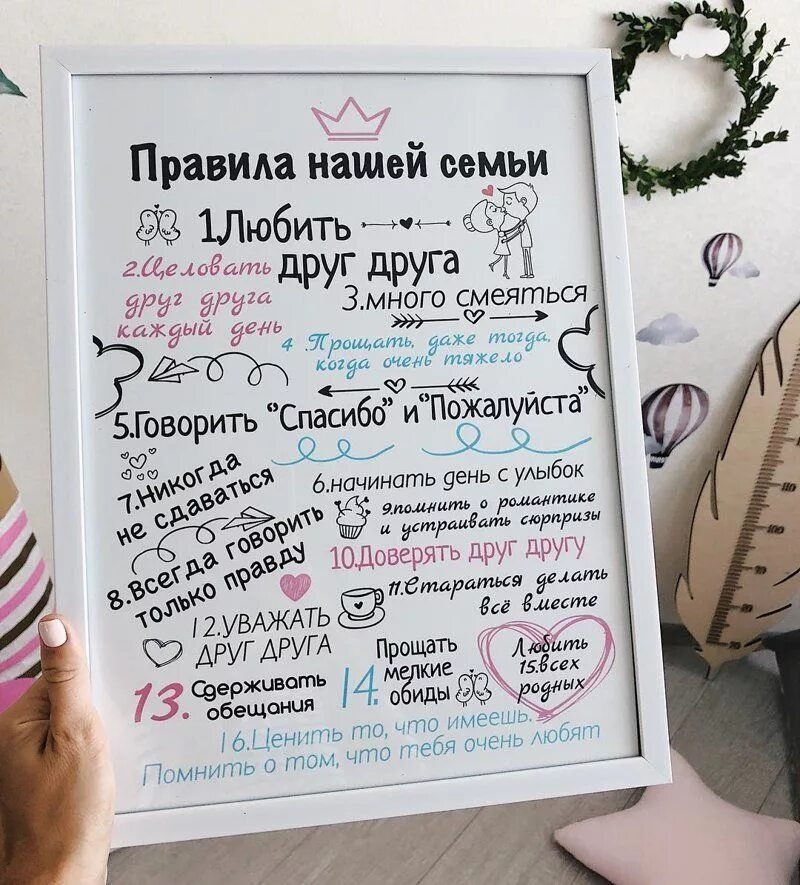 Правила нашей семьи
1Любить
друг друга
2.Целовать
друг друга
каждый день
3.много смеяться
4 Прощать, даже тогда,
когда очень тяжело
5.Говорить "Спасибо" и "Пожалуйста"
6.начинать день с улыбок
7.Никогда
не сдаваться
8.Всегда говорить
только правду
9.помнить о романтике
и устраивать сюрпризы
10.Доверять друг другу
11.Стараться делать
всё вместе
12.УВАЖАТЬ
ДРУГ ДРУГА
13. Сдерживать
обещания
14. Прощать
мелкие
обиды
Любить
15.всех
родных
16.Ценить то, что имеешь.
Помнить о том, что тебя очень любят